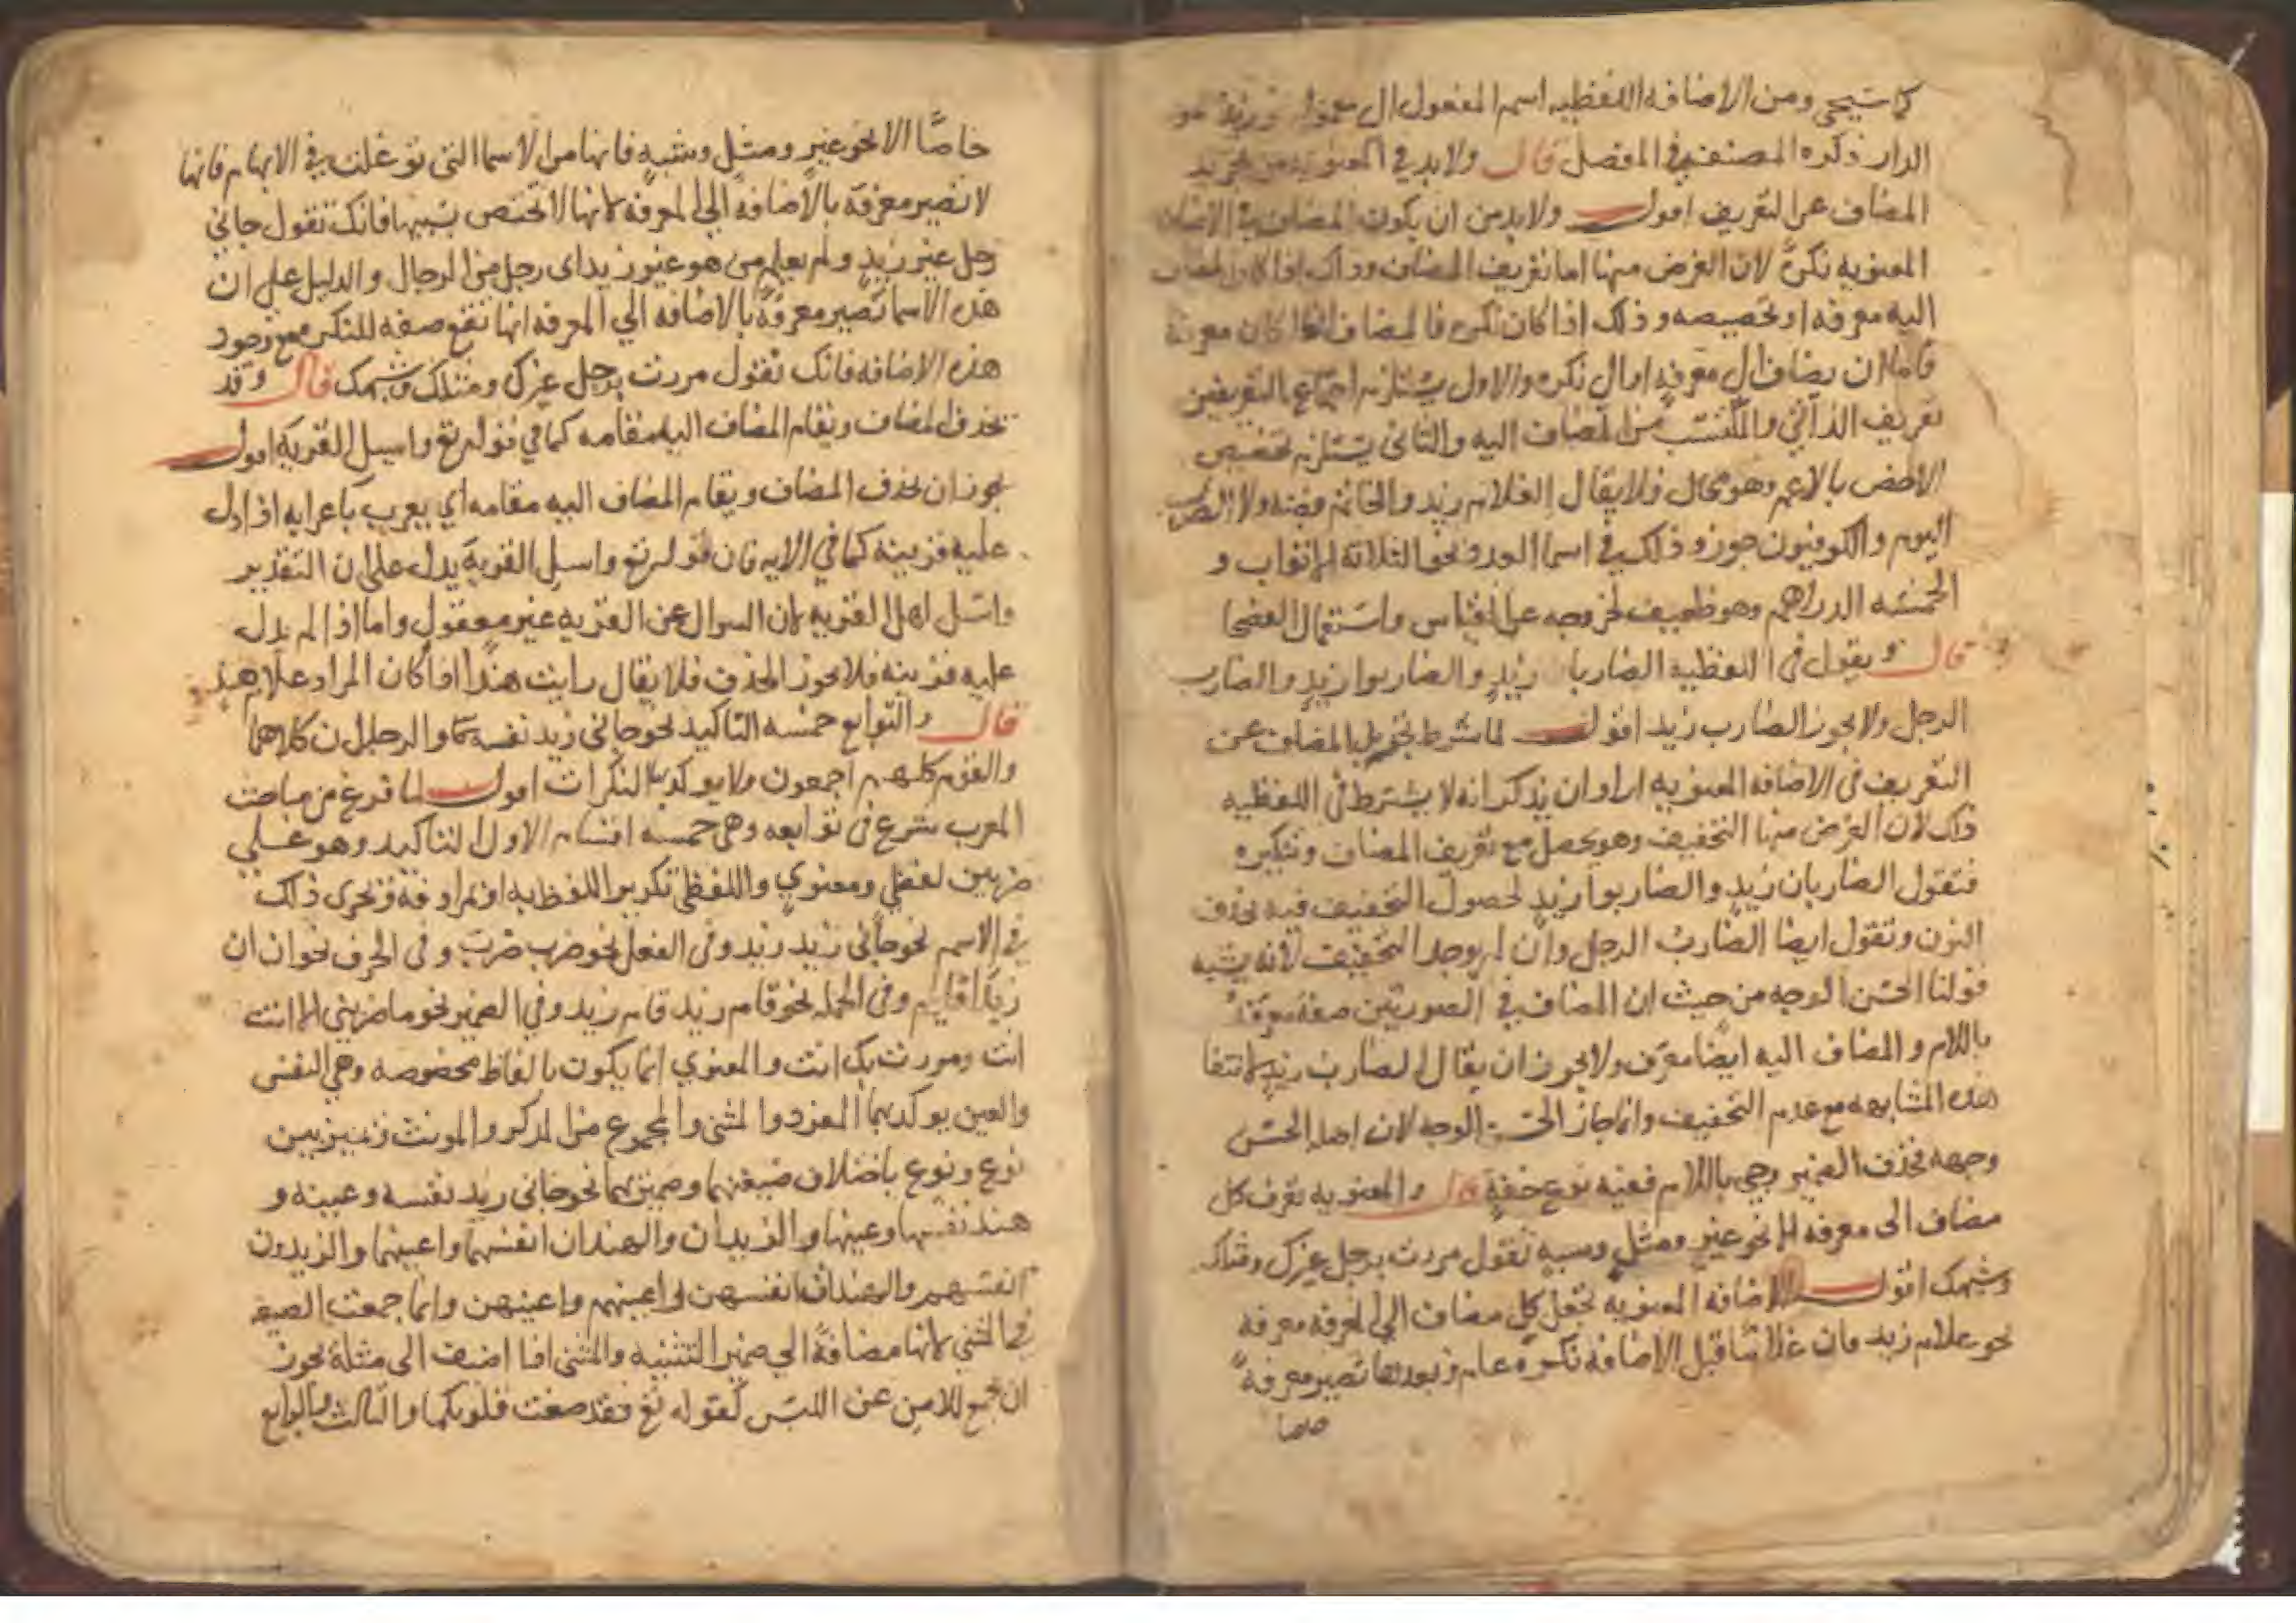 كما سيجي ومن الاضافه اللفظيه اسم المفعول الى معموله
الدار ذكره المصنف في المفصل قال ولابد في المعنويه من تجريد
المضاف عن التعريف اقول ولابد من ان يكون المضاف في الاضافه
المعنويه نكرةً لان الغرض منها اما تعريف المضاف وذاك اذا كان المضاف
اليه معرفه او تخصيصه وذلك اذا كان نكره فالمضاف اذا كان معرفة
فاما ان يضاف الى معرفةٍ او الى نكره والاول يستلزم اجتماع التعريفين
تعريف الذاتي والمكتسب من المضاف اليه والثاني يستلزم تخصيص
الاخص بالاعم وهو محال فلا يقال الغلام زيد والخاتم فضه ولا الضرب
اليوم والكوفيون جوزو ذلك في اسما العدد نحو الثلاثة الاثواب و
الخمسه الدراهم وهو ضعيف لخروجه عن القياس واستعمال الفصحا
قال وتقول في اللفظية الضاربا زيدٍ والضاربوا زيدٍ والضارب
الرجل ولا يجوز الضارب زيد اقول لما شرط تجريد المضاف عن
التعريف في الاضافه المعنويه اراد ان يذكر انه لا يشترط في اللفظيه
ذلك لان الغرض منها التخفيف وهو يحصل مع تعريف المضاف وتنكيره
فتقول الضاربان زيدٍ والضاربوا زيدٍ لحصول التخفيف فيه بحذف
النون وتقول ايضا الضاربُ الرجل وان لم يوجد التخفيف لانه يشبه
قولنا الحسن الوجه من حيث ان المضاف في الصورتين صفة معرفةٌ
باللام والمضاف اليه ايضًا معرّف ولا يجوز ان يقال الضارب زيدٍ لانتفا
هذه المشابهه مع عدم التخفيف وانما جاز الحسن الوجه لان اصله الحسن
وجهه فحذف الضمير وجي باللام ففيه نوع خفةٍ قال والمعنويه تعرف كل
مضاف الى معرفه الا نحو غيرٍ ومثلٍ وشبهٍ تقول مررت برجل غيرك ومثلك
وشبهك اقول الاضافه المعنويه تجعل كل مضاف الى المعرفه معرفة
نحو غلام زيد فان غلامًا قبل الاضافة نكرةٌ عام وبعدها تصير معرفةً
خاصا
خاصًّا الا نحو غيرٍ ومثلٍ وشبهٍ فانها من الاسما التي توغلت في الابهام فانها
لا تصير معرفة بالاضافة الى المعرفه لانها لا تختص بسببها فانك تقول جاني
رجل غير زيدٍ ولم يعلم من هو غير زيد اي رجل من الرجال والدليل على ان
هذه الاسما تصير معرفةً بالاضافه الى المعرفه انها تقع صفه للنكره مع وجود
هذه الاضافه فانك تقول مررت برجل غيرك ومثلك وشبهك قال وقد
تحذف المضاف ويقام المضاف اليه مقامه كما في قوله تع واسيل القرية اقول
يجوز ان يحذف المضاف ويقام المضاف اليه مقامه اي يعرب باعرابه اذا دل
عليه قرينه كما في الايه فان قوله تع واسيل القرية يدل على ان التقدير
واسئل اهل القريه لان السوال عن القريه غير معقول واما اذا لم يدل
عليه قرينه فلا يجوز الحذف فلا يقال رايت هندًا اذا كان المراد غلام هندٍ
قال والتوابع خمسه التاكيد نحو جاني زيد نفسه والرجلان كلاهما
والقوم كلهم اجمعون ولا يوكد بها النكرات اقول لما فرغ من مباحث
المعرب شرع في توابعه وهي خمسه اقسام الاول التاكيد وهو على
ضربين لفظي ومعنوي واللفظي تكرير اللفظ به او بمرادفه ويجرى ذلك
في الاسم نحو جاني زيد زيد وفي الفعل نحو ضرب ضرب وفي الحرف نحو ان ان
زيدًا قايم وفي الجمله نحو قام زيد قام زيد وفي الضمير نحو ما ضربني الا انت
انت ومررت بك انت والمعنوي انما يكون بالفاظ مخصوصه وهي النفس
والعين يوكد بهما المفرد والمثنى والمجموع من المذكر والمونث
نوع ونوع باختلاف صيغتهما وضميرهما نحو جاني زيد نفسه وعينه و
هند نفسها وعينها والزيدان والهندان انفسهما واعينهما والزيدون
انفسهم والهندات انفسهن او اعينهم واعينهن وانما جمعت الصيغه
في المثنى لانها مضافةً الى ضمير التثنيه والمثنى اذا اضيف الى مثله يجوز
ان يجمع للامن عن اللبس كقوله تع فقد صغت قلوبكما والثالث والرابع